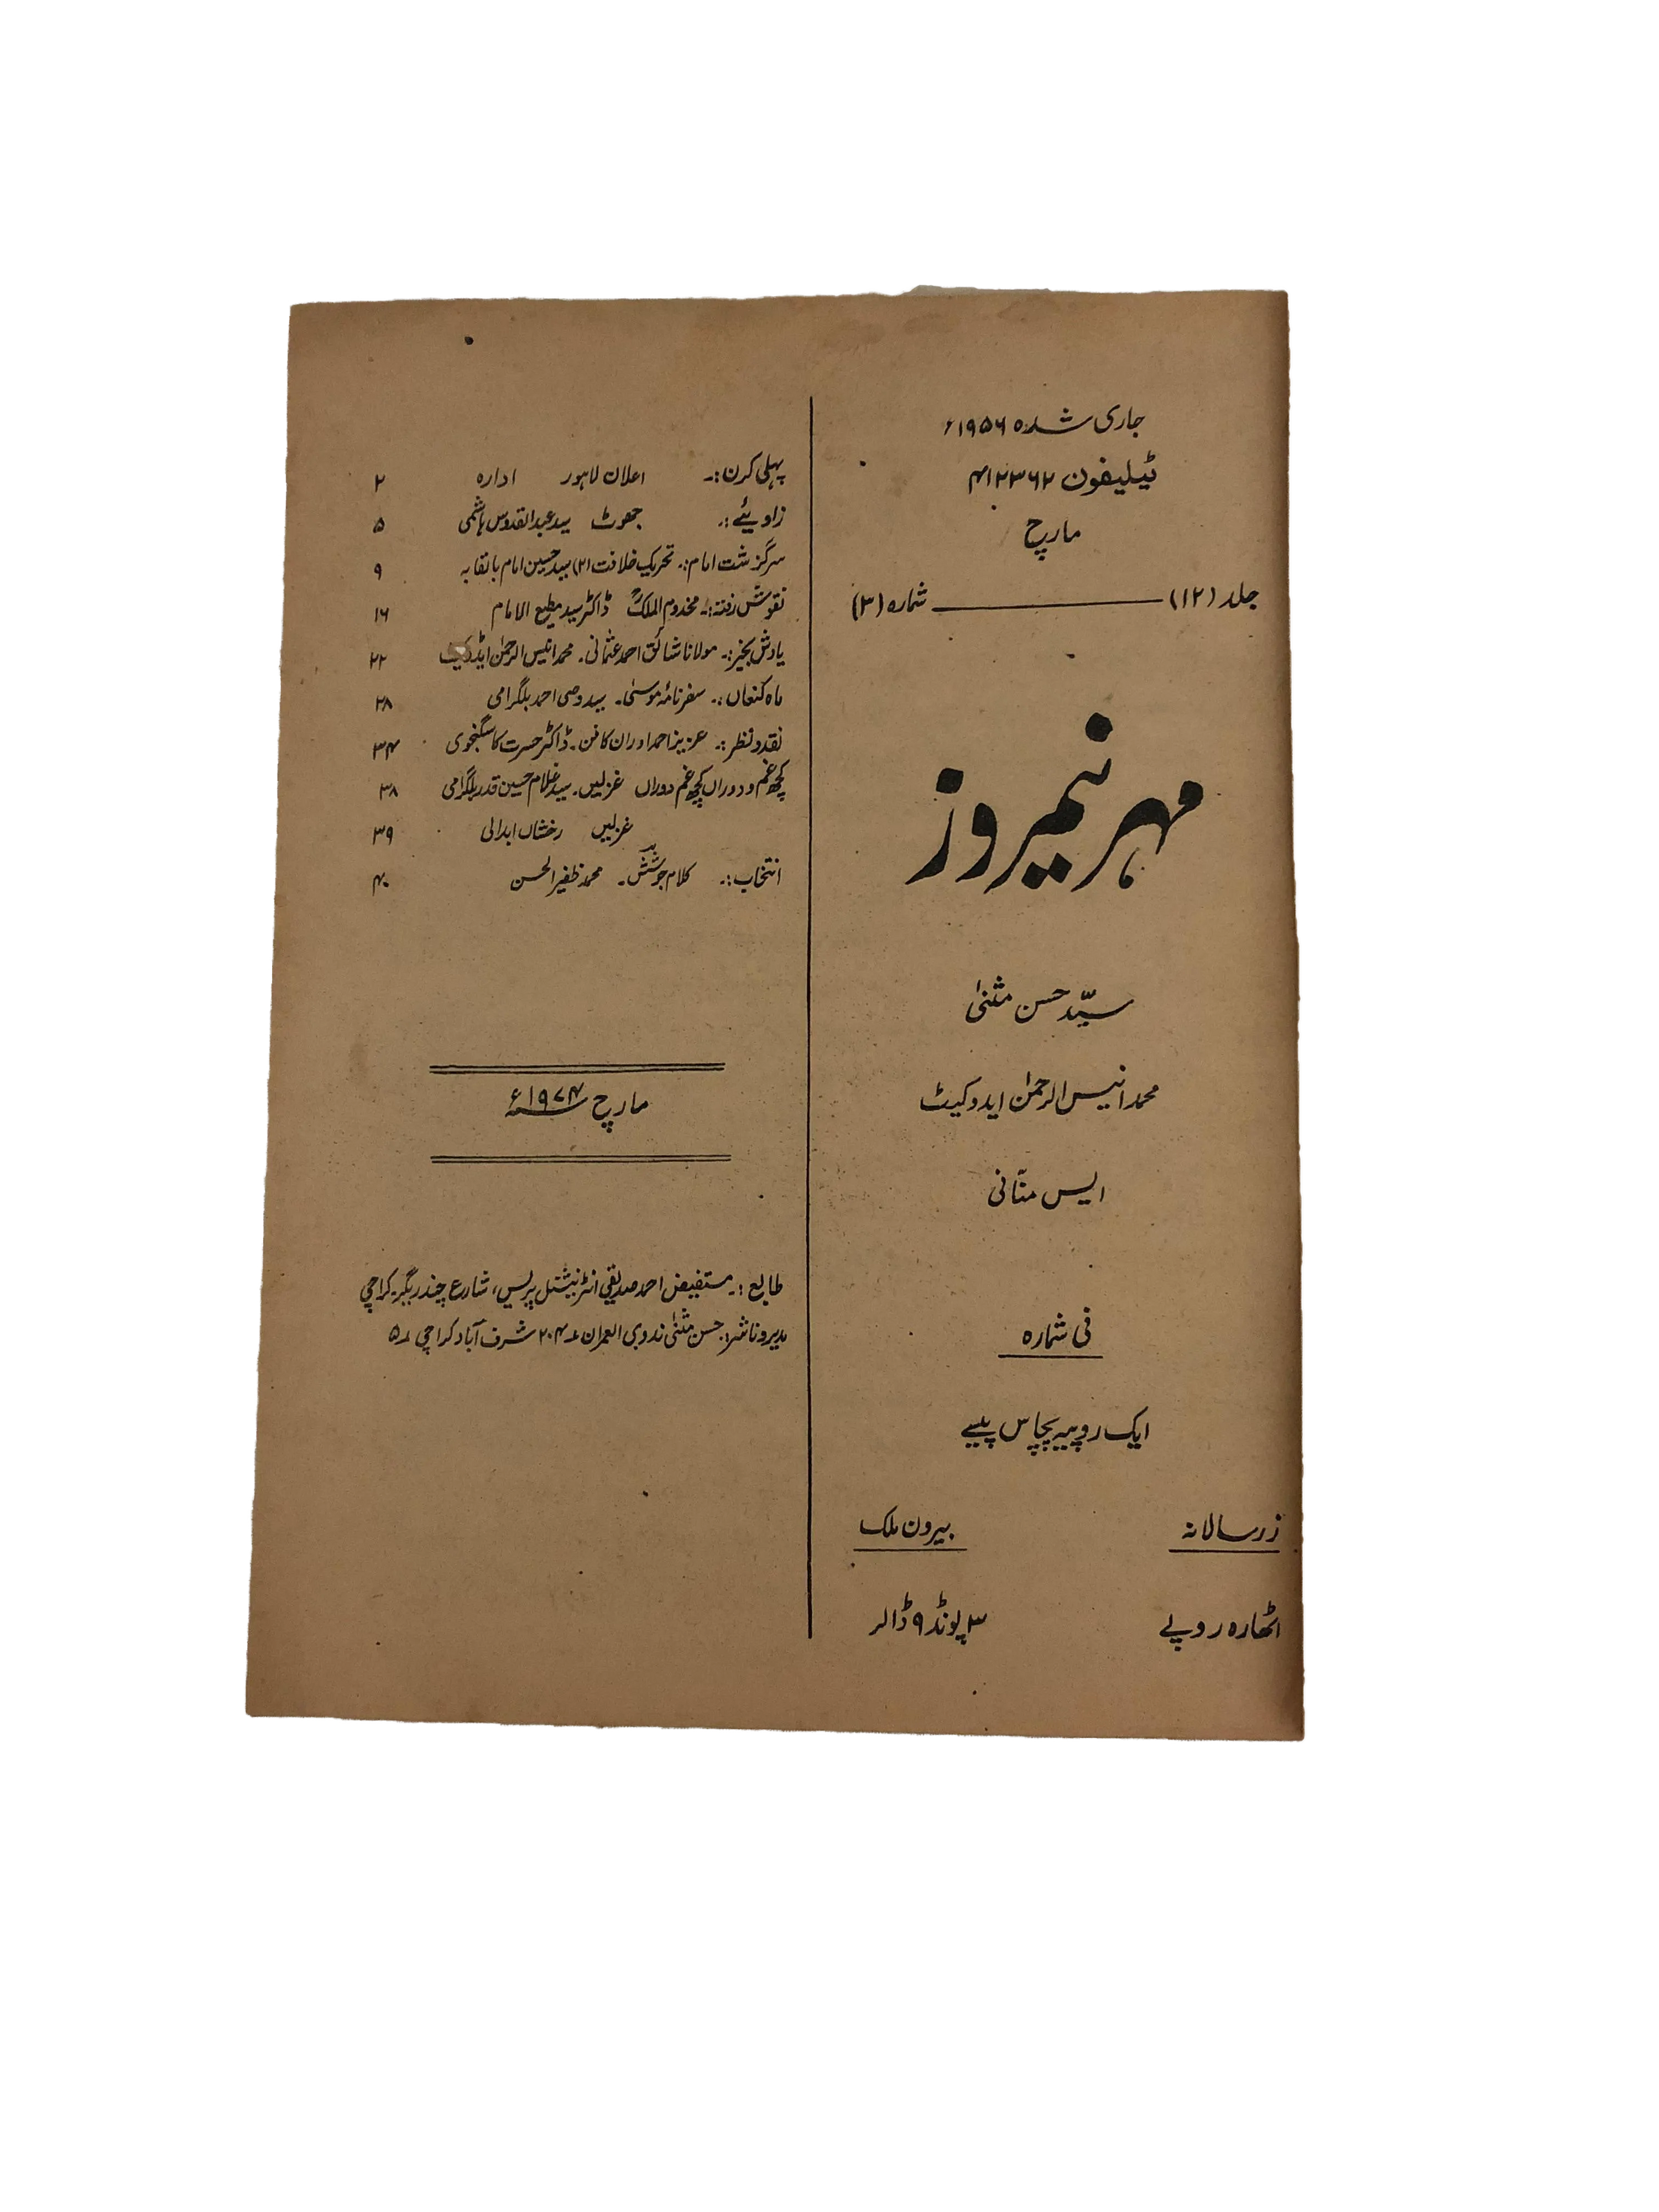 جاری شدہ ۱۹۵۶ء
ٹیلیفون ۴۱۲۳۶۲
مارچ
جلد (۱۲) ــــــ شمارہ (۳)
مہر نیمروز
سیّد حسن مثنیٰ
محمد انیس الرحمٰن ایدوکیٹ
ایس منّانی
فی شمارہ
ایک روپیہ پچاس پیسے
زر سالانہ بیرون ملک
اٹھارہ روپے ۳ پونڈ ۹ ڈالر
پہلی کرن:۔ اعلان لاہور ادارہ ۲
زاویئے:۔ جھوٹ سید عبدالقدوس ہاشمی ۵
سرگزشت امام:۔ تحریک خلافت (۲) سید حسین امام بالقابہ ۹
نقوش رفتہ:۔ مخدوم الملکؒ ڈاکٹر سید مطیع الامام ۱۶
یادش بخیر:۔ مولانا شائق احمد عثمانی۔ محمد انیس الرحمٰن ایڈوکیٹ ۲۲
ماہ کنعاں:۔ سفرنامۂ موسیٰ۔ سید وصی احمد بلگرامی ۲۸
نقد و نظر:۔ عزیز احمد اور ان کا فن۔ ڈاکٹر حسرت کاسگنجوی ۳۴
کچھ غم و دوراں کچھ غم دوراں غزلیں۔ سید غلام حسین قدر بلگرامی ۳۸
غزلیں رخشاں ابدالی ۳۹
انتخاب:۔ کلام جوشش۔ محمد ظفیر الحسن ۴۰
مارچ ۱۹۷۴ء
طابع:۔ مستفیض احمد صدیقی انٹرنیشنل پریس، شارع چندریگر۔ کراچی
مدیر و ناشر:۔ حسن مثنیٰ ندوی العمران ۲۰۴ شرف آباد کراچی ۵